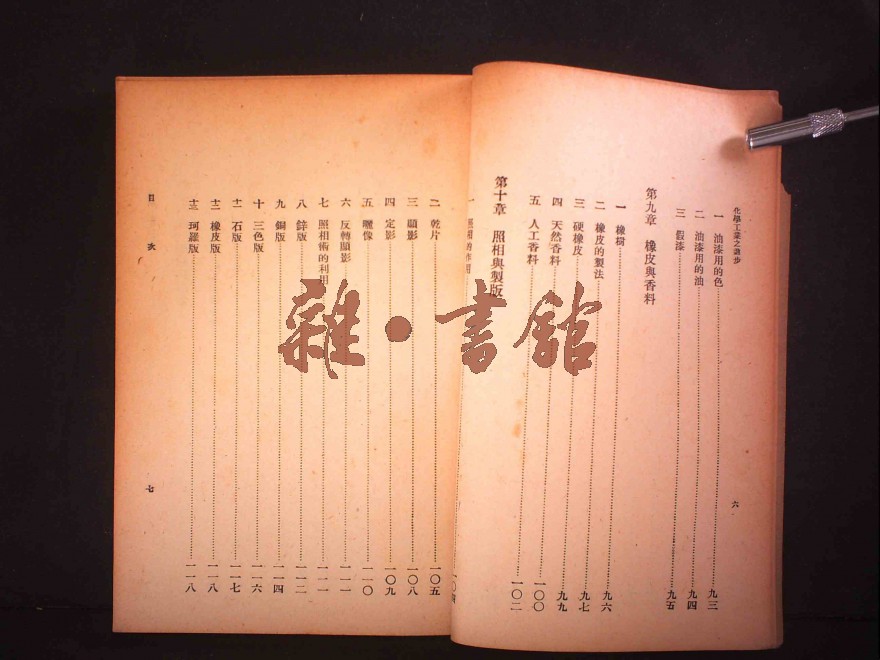 化學工業之進步
一 油漆用的色 九三
二 油漆用的油 九四
三 假漆 九五
第九章 橡皮與香料
一 橡樹 九六
二 橡皮的製法 九六
三 硬橡皮 九七
四 天然香料 九九
五 人工香料 一〇〇
第十章 照相與製版 一〇二
一 照相的作用 一〇四
六
二 乾片 一〇五
三 顯影 一〇八
四 定影 一〇九
五 曬像 一一〇
六 反轉顯影 一一一
七 照相術的利用 一一一
八 鋅版 一一二
九 銅版 一一四
十 三色版 一一六
十一 石版 一一七
十二 橡皮版 一一八
十三 珂羅版 一一八
目次
七
雜•書館